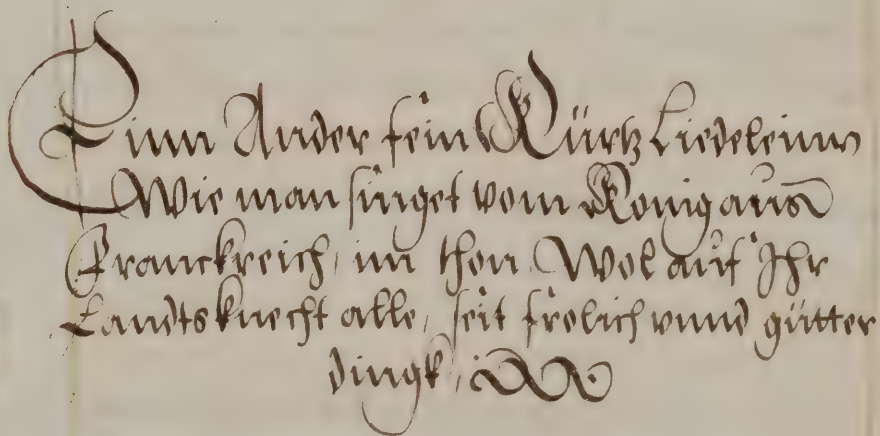 Einn Ander fein Kürtz Liedeleinn
Wie man singet vom Konig auss
Franckreich, im thon, Wol auf Ihr
Landtsknecht alle, seit frolich vnnd gütter
dingk,